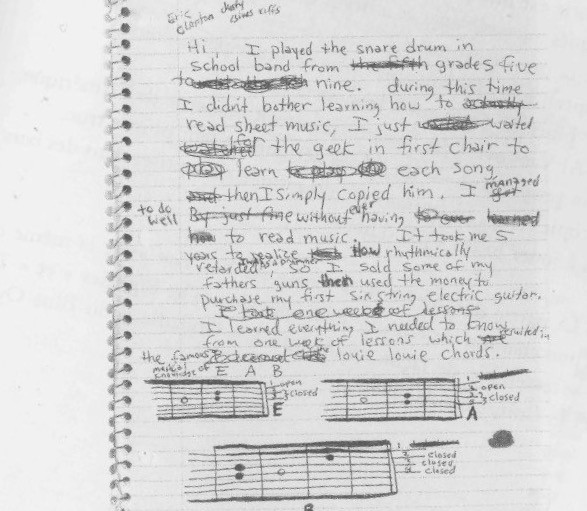 Eric Clapton dusty blues riffs
Hi, I played the snare drum in
school band from the fifth grades five
to nine. during this time
I didn't bother learning how to actually
read sheet music, I just waited
for the geek in first chair to
play learn to play the each song
and then I simply copied him. I managed
to do well By just fine without ever having to ever learned
how to read music. It took me 5
years to realize How rhythmically
retarded, so I sold some of my
fathers guns then used the money to
purchase my first six string electric guitar.
I took one week of lessons
I learned everything I needed to know
from one week of lessons which resulted in
the famous louie louie chords.
musical knowledge of E A B
1 open
2
3
closed
E
1
2 open
3
closed
A
1
2 closed
3 closed
4 closed
B